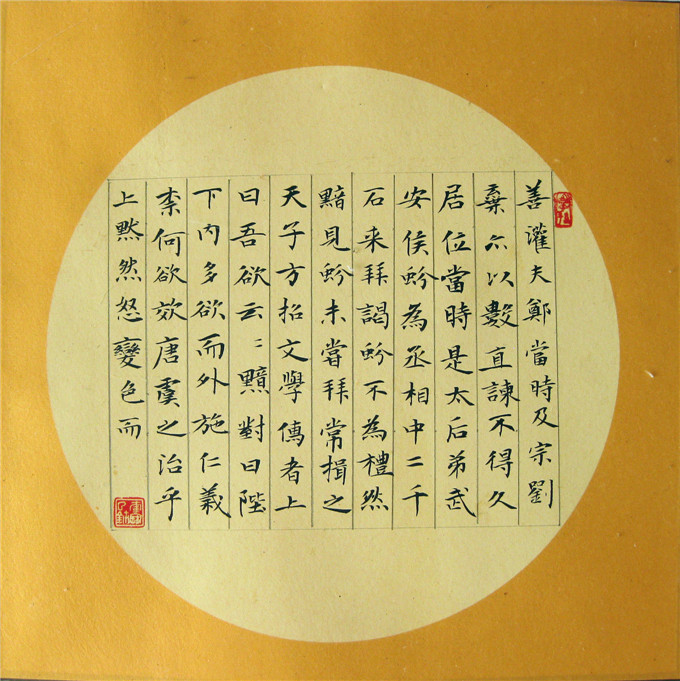 善灌夫鄭當時及宗劉
棄亦以數直諫不得久
居位當時是太后弟武
安侯蚡為丞相中二千
石来拜謁蚡不為禮然
黯見蚡未嘗拜常揖之
天子方招文學傳者上
曰吾欲云〻黯對曰陛
下内多欲而外施仁義
柰何欲效唐虞之治乎
上黙然怒變色而